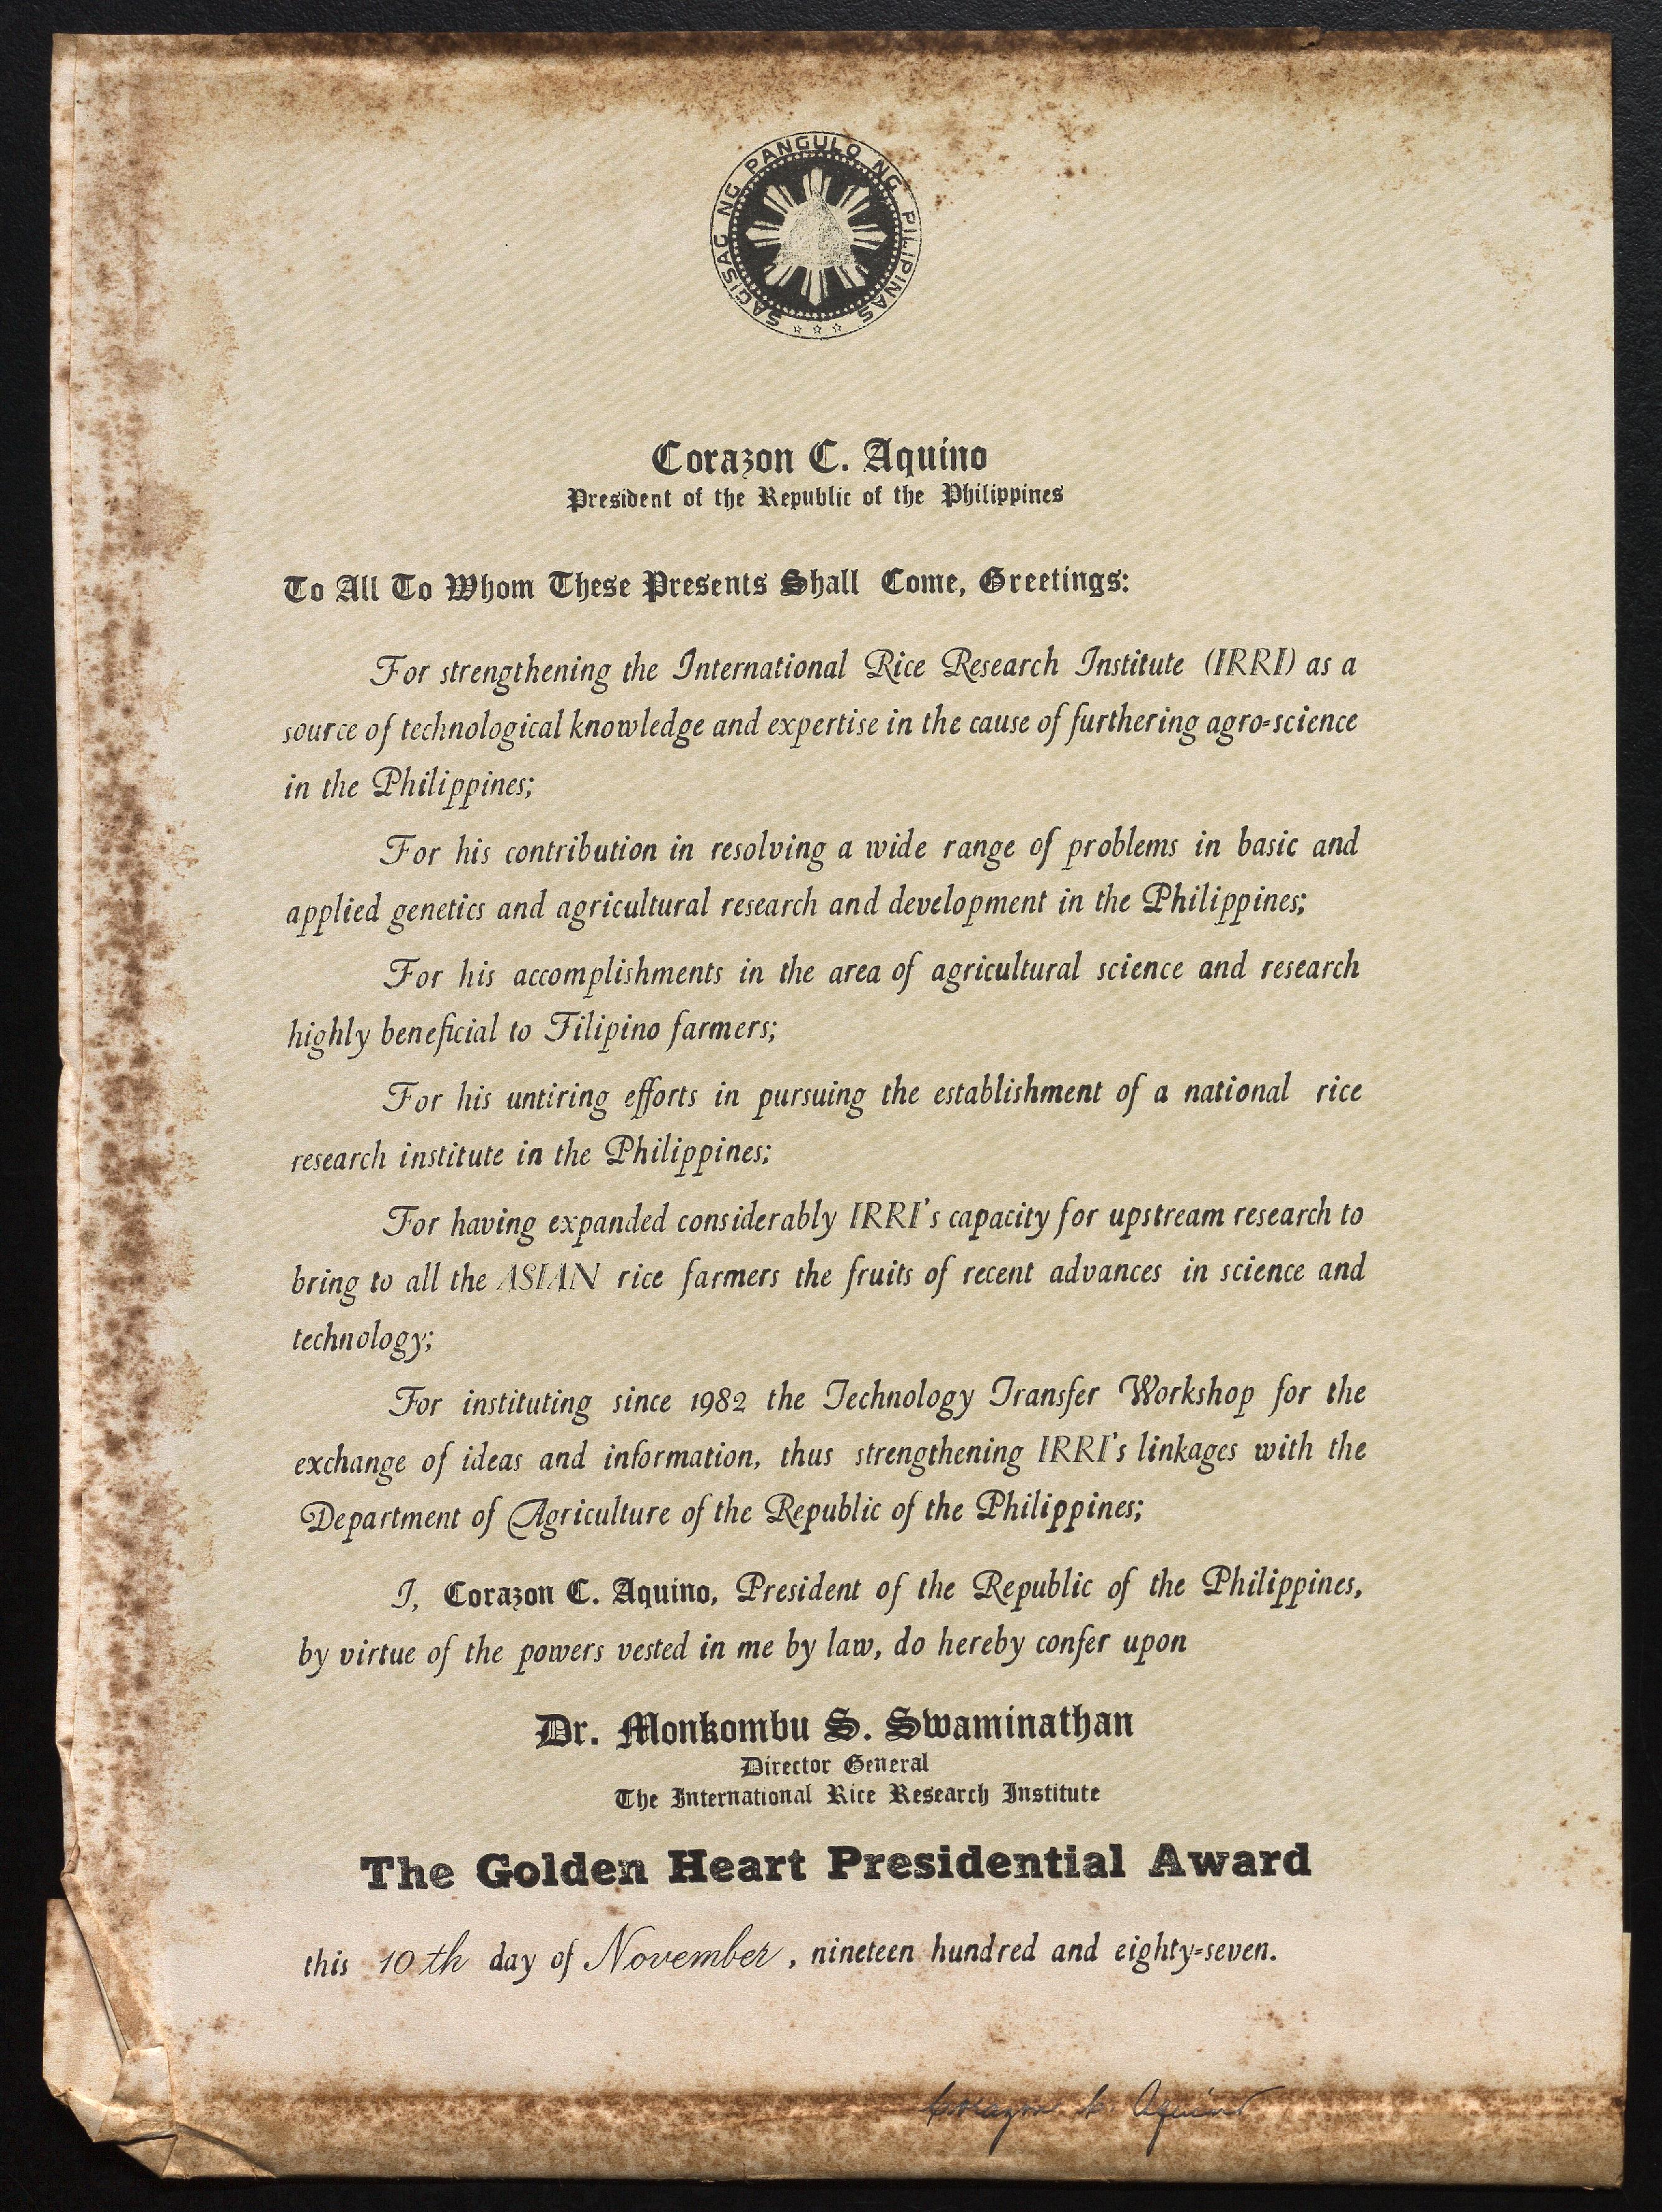 SAGISAG NG PANGULO NG PILIPINAS
Corazon C. Aquino
President of the Republic of the Philippines
To All To Whom These Presents Shall Come, Greetings:
For strengthening the International Rice Research Institute (IRRI) as a
source of technological knowledge and expertise in the cause of furthering agro-science
in the Philippines;
For his contribution in resolving a wide range of problems in basic and
applied genetics and agricultural research and development in the Philippines;
For his accomplishments in the area of agricultural science and research
highly beneficial to Filipino farmers;
For his untiring efforts in pursuing the establishment of a national rice
research institute in the Philippines;
For having expanded considerably IRRI's capacity for upstream research to
bring to all the ASIAN rice farmers the fruits of recent advances in science and
technology;
For instituting since 1982 the Technology Transfer Workshop for the
exchange of ideas and information, thus strengthening IRRI's linkages with the
Department of Agriculture of the Republic of the Philippines;
I, Corazon C. Aquino, President of the Republic of the Philippines,
by virtue of the powers vested in me by law, do hereby confer upon
Dr. Monkombu S. Swaminathan
Director General
The International Rice Research Institute
The Golden Heart Presidential Award
this 10th day of November, nineteen hundred and eighty-seven.
Corazon C. Aquino